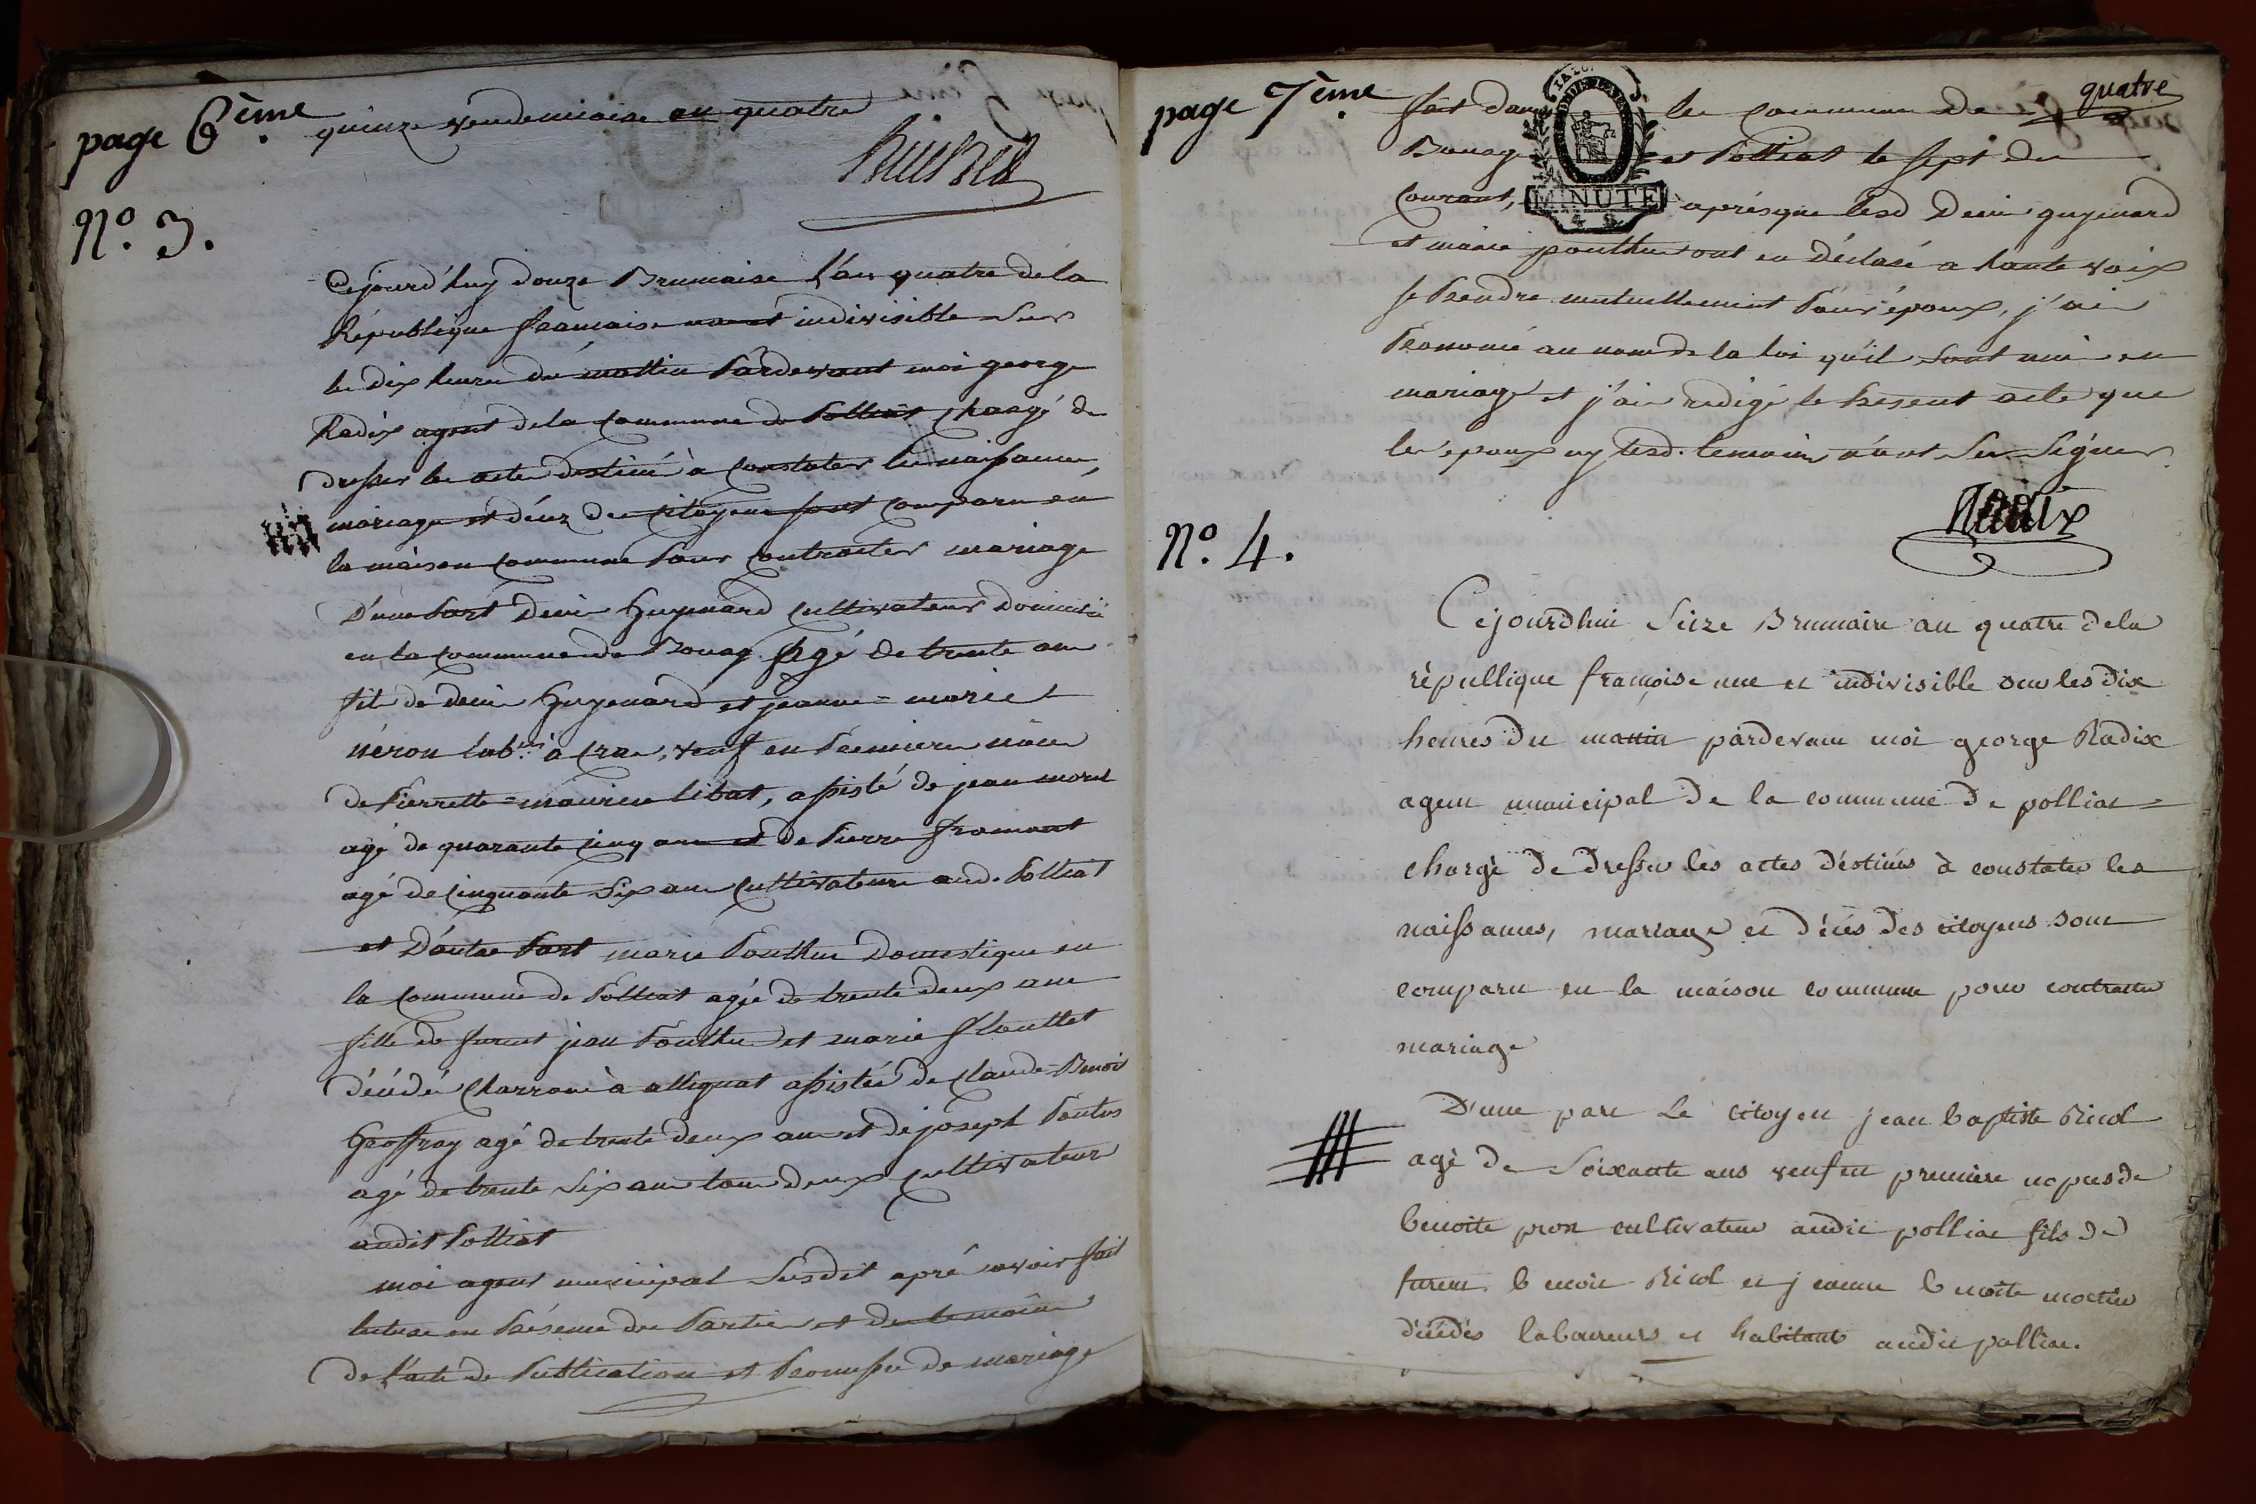 page 6ème
quinze vendemiaire an quatre
N.º 3.
Cejourd'huy douze Brumaire l'an quatre de la
République francaise une et indivisible Sur
les dix heures du mattin Pardevant moi george
Radix agent de la commune de Polliat chargé de
dresser les actes destiné à Constater les naissances,
mariages et décez des citoyens sont comparu en
la maison commune Pour contracter mariage
D'une Part Denis Guyenard cultivateur Domicilié
en la commune de Bouag agé de trente ans
fils de denis Guyenard et jeanne=marie
néron lab.rs à Cras, veuf en Premieres nôces
de Pierrette=maurice libat, assisté de jean morel
agé de quarante cinq ans et de Pierre fromont
agé de Cinquante Six ans Cultivateurs aud. Polliat
et D'autre Part marie Pouthu Domestique en
la Commune de Polliat agée de trente deux ans
fille de furent jean Pouthu et marie
décédés Charrons à attignat assistée de Claude-Benoit
Geoffray agé de trente deux ans et de joseph
agé de trente Six ans tous deux Cultivateurs
audit Polliat
moi agent municipal Susdit aprés avoir fait
lecture en Présence des Parties et des temoins
de l'acte de Publication et Promesse de mariage
page 7ème
quatre
fait dans les communes de
Bouag et Polliat le sept du
MINUTE
Courant, aprésque lesd Denis guyenard
et marie pouthu ont eu déclaré a haute voix
se Prendre mutuellement Pour époux, j'ai
Prononcé au nom de la loi qu'il Sont unis en
mariage et j'ai redigé le Present acte que
les époux ny lesd. temoins n'ont Su Signer
Radix
N.º 4.
Cejourdhui Seize Brumaire an quatre dela
républlique françoise une et indivisible sur les dix
heures du mattin pardevant moi george Radix
agent municipal de la commune de polliat=
chargé de dresser les actes déstinés à constater les
naissances, mariage et décés des citoyens sont
comparu en la maison commune pour contracter
mariage
D'une part Le citoyen jean baptiste Ricol
agé de Soixante ans veuf en premiere nopces de
benoite pron cultivateur audit polliat fils de
furent benoit Ricol et jeanne benoite
décédés laboureurs et habitants audit polliat.